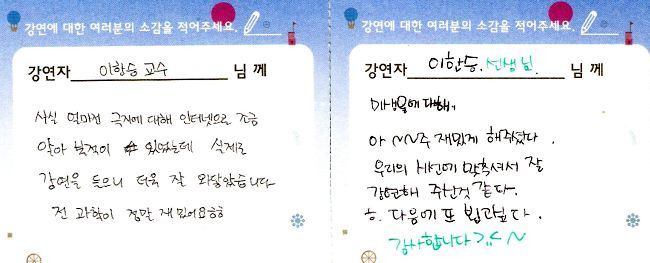 강연에 대한 여러분의 소감을 적어주세요.
강연자 이한승 교수 님 께
사실 얼마전 극지에 대해 인터넷으로 조금
알아 본적이 있었는데 실제로
강연을 들으니 더욱 잘 와닿았습니다
전 과학이 정말 재밌어요ㅎㅎ
강연에 대한 여러분의 소감을 적어주세요.
강연자 이한승. 선생님. 님 께
미생물에 대해서
아 ~~주 재밌게 해주셨다.
우리의 시선에 맞추셔서 잘
강연해 주신것 같다.
ㅎ. 다음에 또 뵙고싶다.
감사합니다 >.< ~